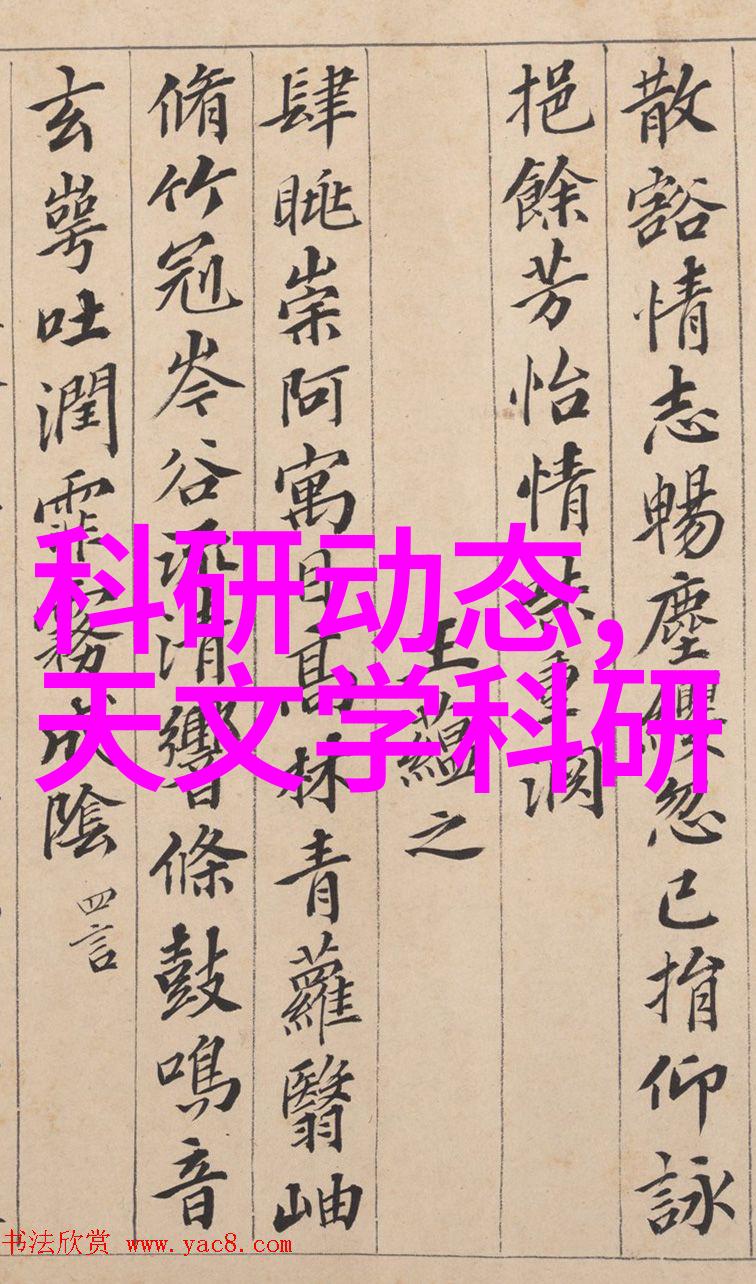 散豁情志暢塵纓忽已捐仰詠
挹餘芳怡情味重淵
王蘊之
肆眺崇阿寓目高林青蘿翳岫
脩竹冠岑谷流清響條鼓鳴音
玄崿吐潤霏霧成陰 四言
科研动态,
天文学科研
书法欣赏 www.yac8.com